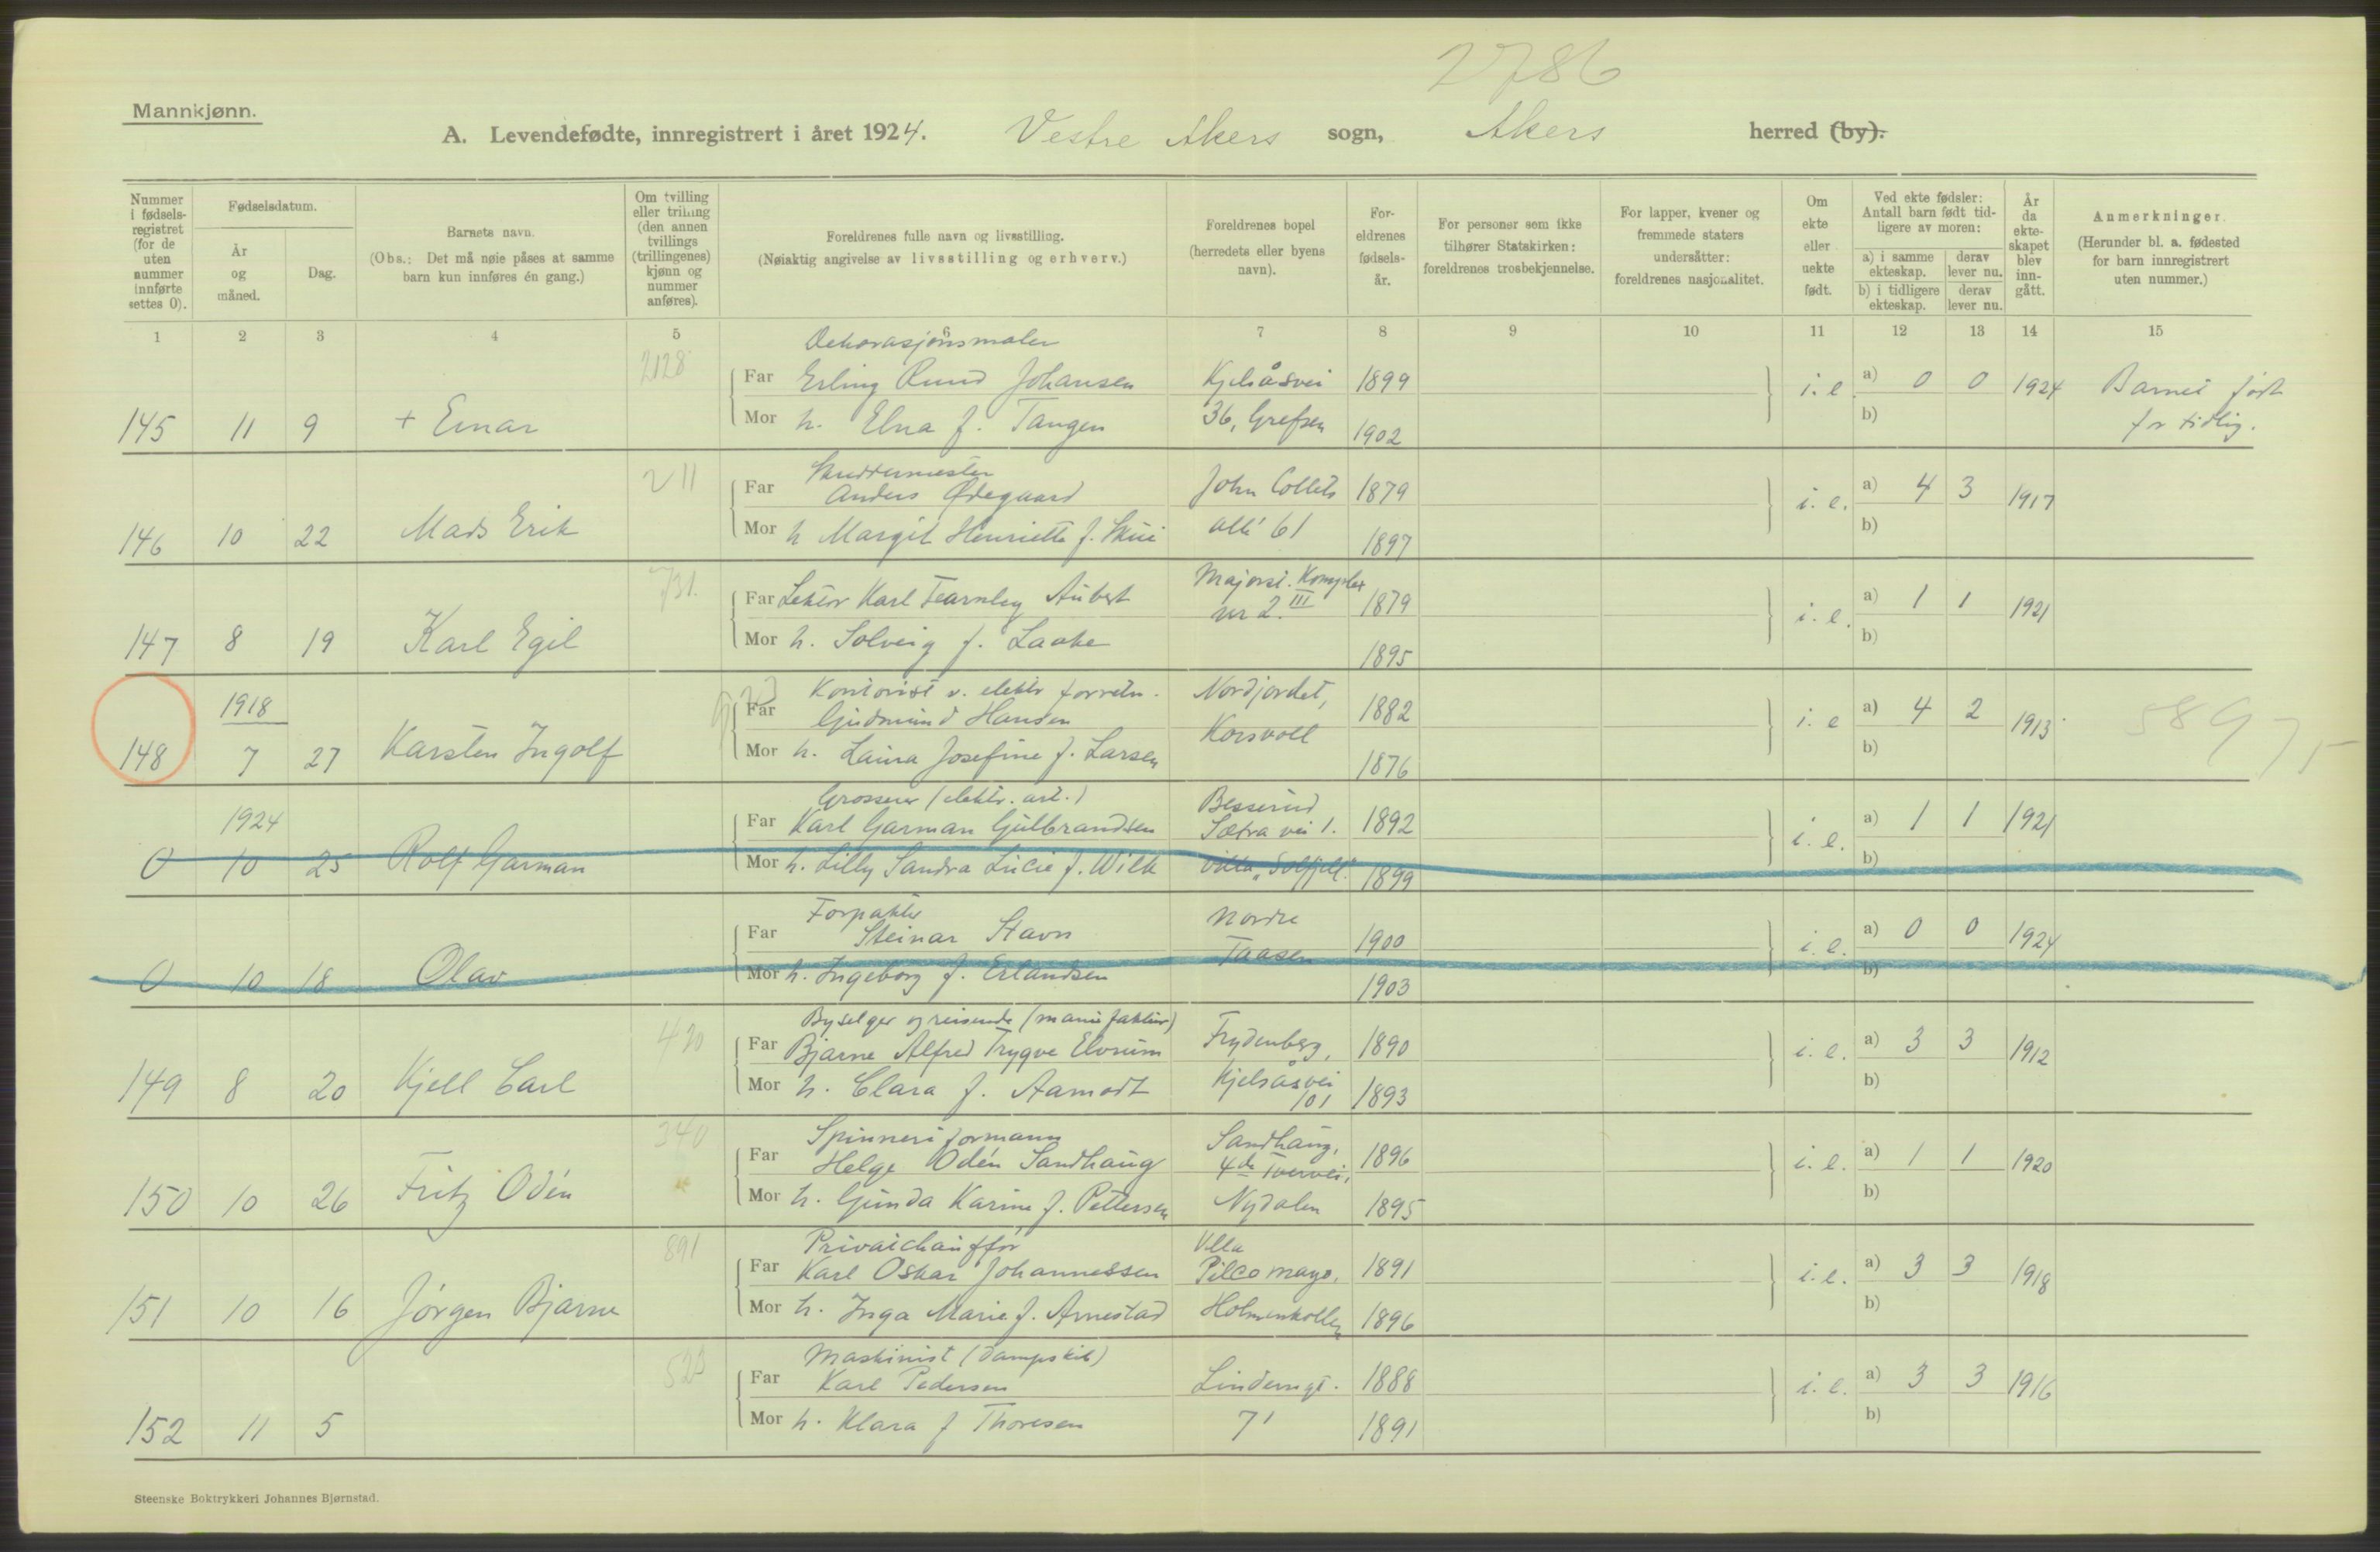 2786
Mannkjønn.
A. Levendefødte, innregistrert i året 1924. Vestre Akers sogn, Akers herred (by).
Nummer i fødselsregistret (for de uten nummer innførte settes 0).
Fødselsdatum.
År og måned.
Dag.
Barnets navn.
(Obs.: Det må nøie påses at samme barn kun innføres én gang.)
Om tvilling eller trilling (den annen tvillings (trillingenes) kjønn og nummer anføres).
Foreldrenes fulle navn og livsstilling.
(Nøiaktig angivelse av livsstilling og erhverv.)
Foreldrenes bopel (herredets eller byens navn).
Foreldrenes fødselsår.
For personer som ikke tilhører Statskirken: foreldrenes trosbekjennelse.
For lapper, kvener og fremmede staters undersåtter: foreldrenes nasjonalitet.
Om ekte eller uekte født.
Ved ekte fødsler: Antall barn født tidligere av moren:
a) i samme ekteskap.
derav lever nu.
b) i tidligere ekteskap.
derav lever nu.
År da ekteskapet blev inngått.
Anmerkninger.
(Herunder bl. a. fødested for barn innregistrert uten nummer.)
1 2 3 4 5 6 7 8 9 10 11 12 13 14 15
2128 Dekorasjonsmaler
Far Erling Ruud Johansen Kjelsåsvei 1899 i. e. a) 0 0 1924 Barnet født
145 11 9 + Einar Mor h. Elna f. Tangen 36, Grefsen 1902 b) for tidlig.
211 Skreddermester
Far Anders Ødegaard John Colletts 1879 i. e. a) 4 3 1917
146 10 22 Mads Erik Mor h Margit Henriette f. Skui allé 61 1897 b)
731. Far Lektor Karl Fearnley Aubert Majorst. Komplex nr 2. III 1879 i. e. a) 1 1 1921
147 8 19 Karl Egil Mor h. Solveig f. Laake 1895 b)
1918 Kontorist v. elektr forretn.
Far Gudmund Hansen Nordjordet, 1882 i. e a) 4 2 1913
148 7 27 Karsten Ingolf Mor h. Laura Josefine f. Larsen Korsvoll 1876 b)
Grosserer (elektr. art.) Besserud
1924 Far Karl Garman Gulbrandsen Sætra vei 1. 1892 i. e. a) 1 1 1921
0 10 25 Rolf Garman Mor h. Lilly Sandra Lucie f. Wilk Villa "Solfjell". 1899 b)
Forpakter
Far Steinar Stavn Nordre 1900 i. e. a) 0 0 1924
0 10 18 Olav Mor h. Ingeborg f. Erlandsen Taasen 1903 b)
Byselger og reisende (manufaktur)
Far Bjarne Alfred Trygve Elvrum Frydenberg, 1890 i. e. a) 3 3 1912
149 8 20 Kjell Carl Mor h. Clara f. Aamodt Kjelsåsvei 101 1893 b)
340 Spinneriformann Sandhaug,
Far Helge Odén Sandhaug 4de Tverrvei, 1896 i. e. a) 1 1 1920
150 10 26 Fritz Odén Mor h. Gunda Karine f. Pettersen Nydalen 1895 b)
891 Privatchauffør Villa
Far Karl Oskar Johannessen Pilcomayo, 1891 i. e. a) 3 3 1918
151 10 16 Jørgen Bjarne Mor h. Inga Marie f. Arnestad Holmenkollen 1896 b)
Maskinist (dampskib)
Far Karl Pedersen Linderngt. 1888 i. e. a) 3 3 1916
152 11 5 Mor h. Klara f Thoresen 71 1891 b)
Steenske Boktrykkeri Johannes Bjørnstad.